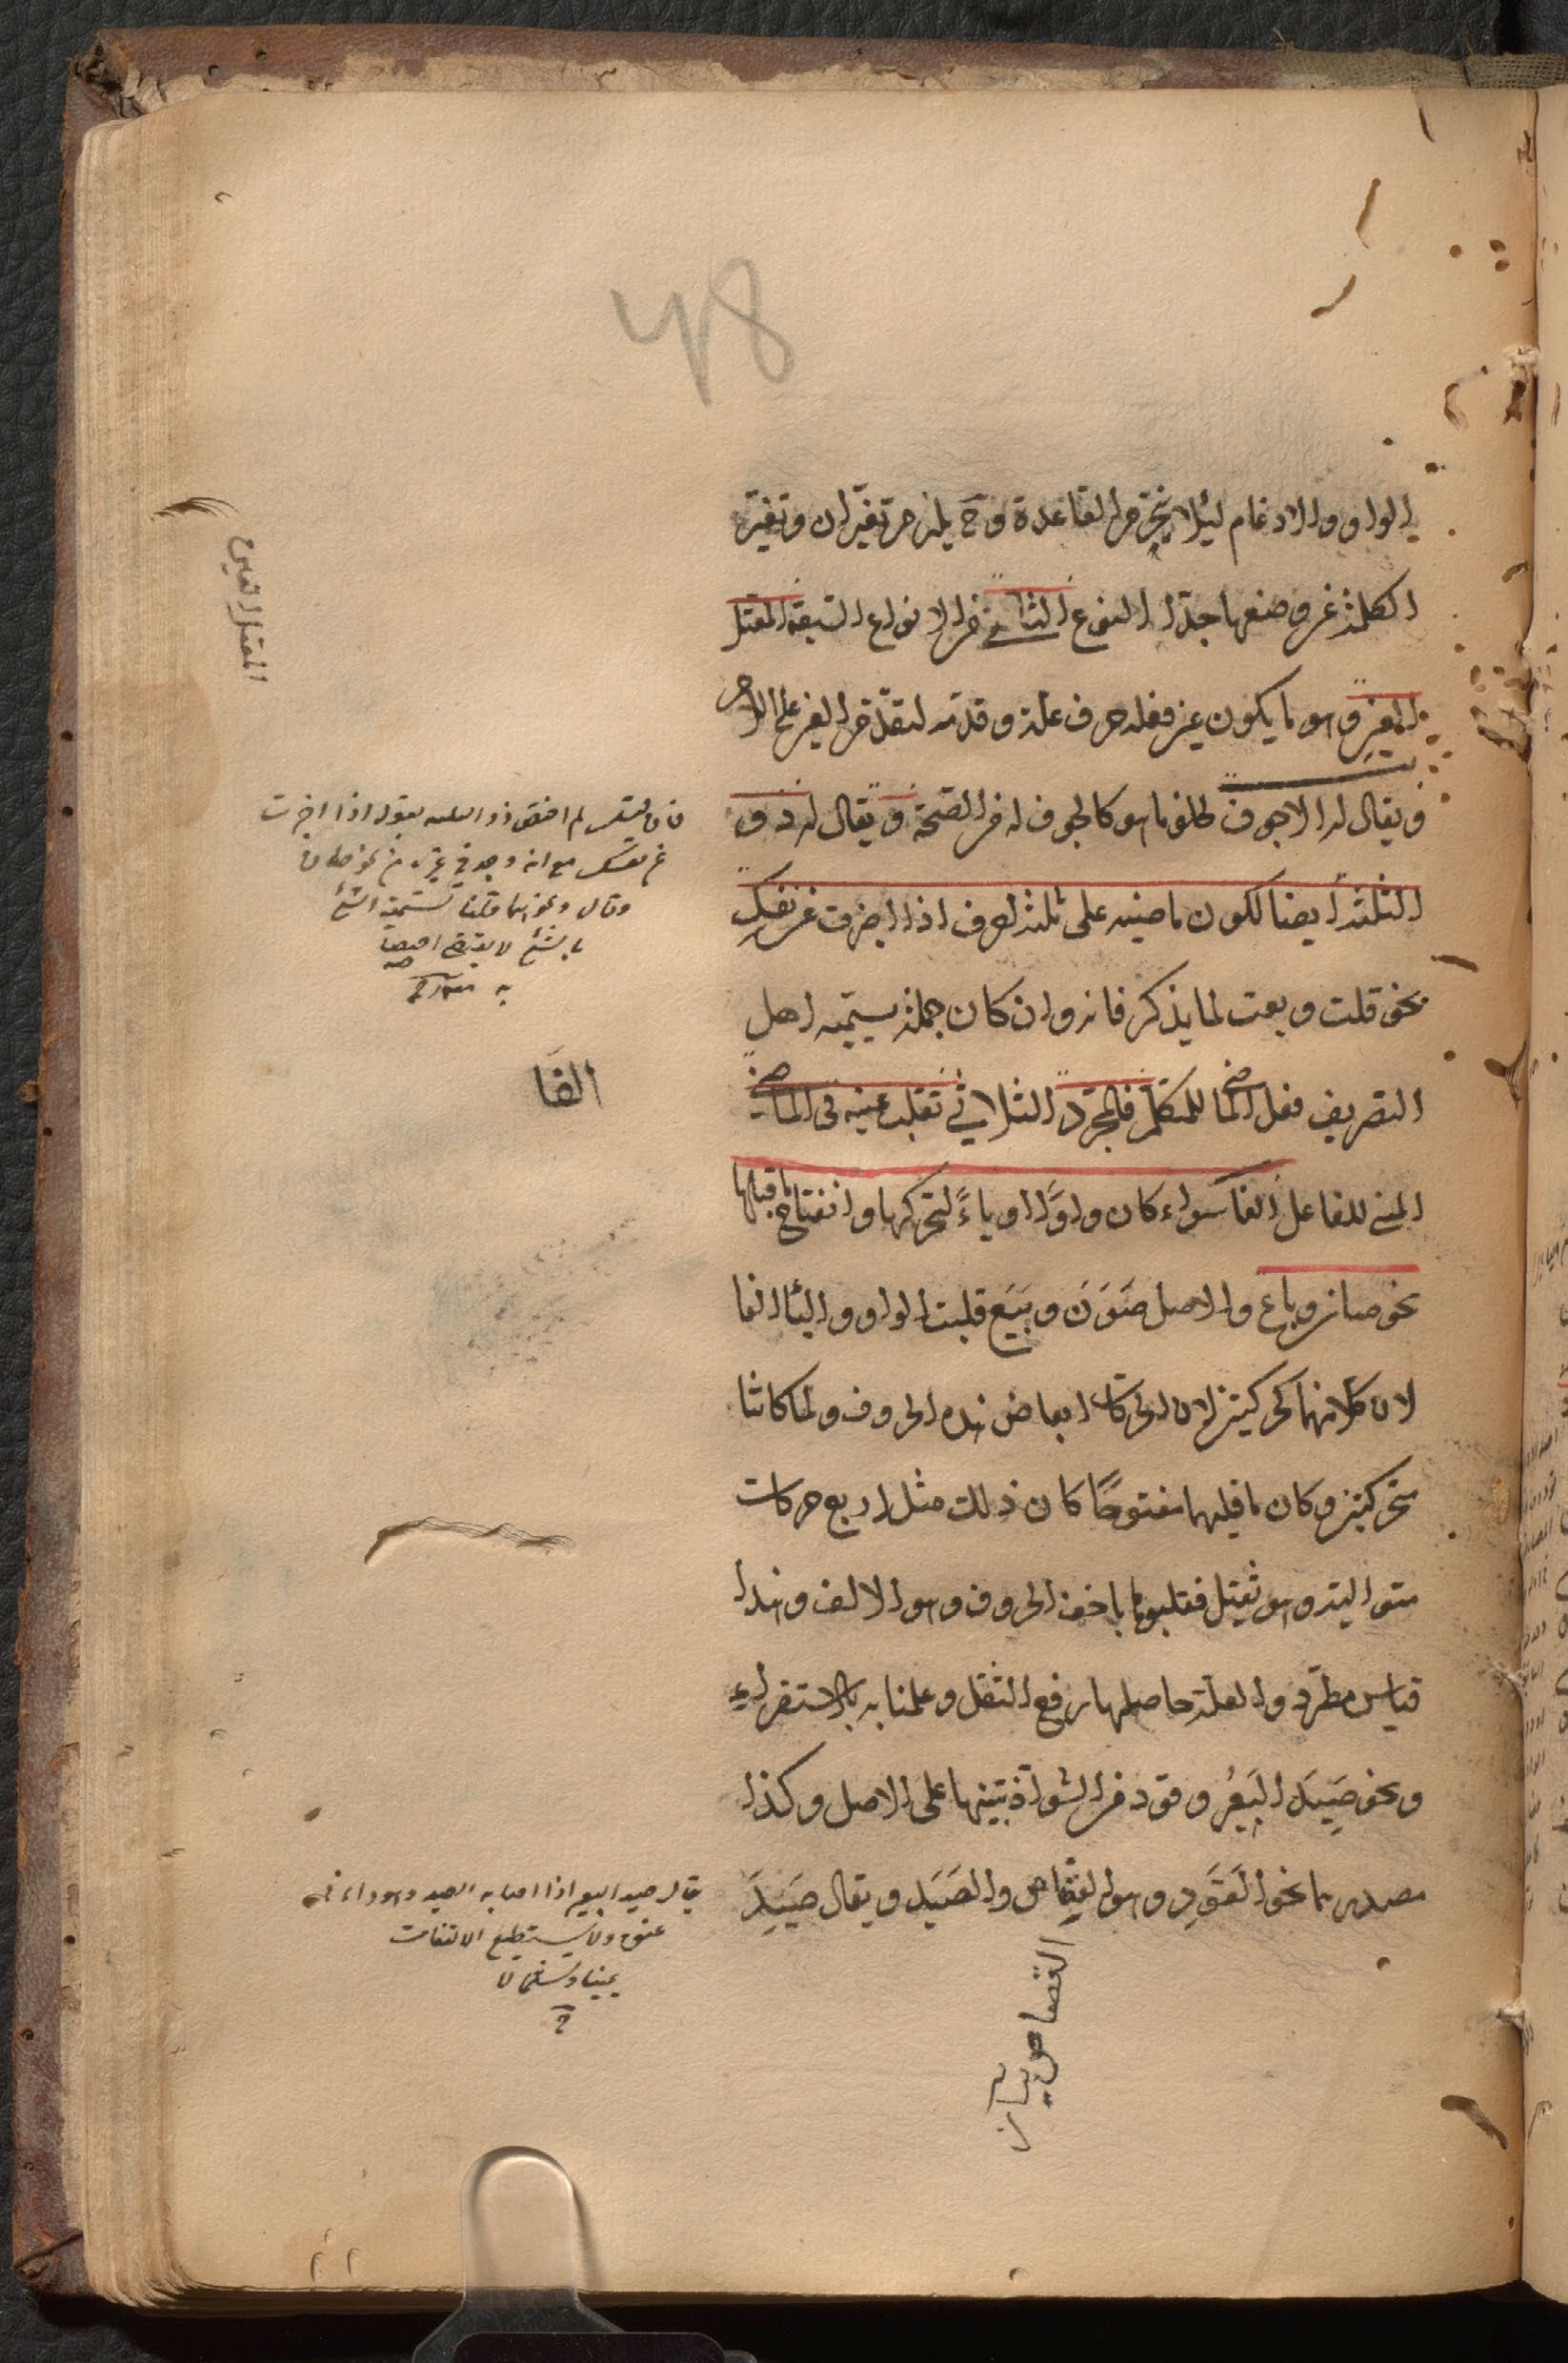 48
الواو والادغام لئلا ينخرم القاعدة وح يلزم تغيران وتغير
الكلمة عن وضعها جدا النوع الثاني من الانواع السبعة المعتل
المعتل العين
العين وهو ما يكون عين فعله حرف علة وقدمه لتقدم العين على اللام
ويقال له الاجوف لخلو ما هو كالجوف له من الصحة ويقال له ذو
الثلثة ايضا لكون ماضيه على ثلثة احرف اذا اخبرت عن نفسك
نحو قلت وبعت لما يذكر فانه وان كان جملة يسميه اهل
التصريف فعل الماضي للمتكلم فالمجرد الثلاثي تقلب عينه في الماضي
المبني للفاعل الفا سواء كان واوًا او ياءً لتحركها وانفتاح ما قبلها
نحو صان وباع والاصل صَوَنَ وبَيَعَ قلبت الواو والياء الفا
لان كلا منهما كحركتين لان الحركات ابعاض هذه الحروف ولما كانتا
متحركتين وكان ما قبلهما مفتوحًا كان ذلك مثل اربع حركات
متوالية وهو ثقيل فقلبوهما باخف الحروف وهو الالف وهذا
قياس مطرد والعلة حاصلها رفع الثقل وعلمنا به بالاستقراء
ونحو صَيِدَ البعير وقود من الشواذ تنبيها على الاصل وكذا
مصدرهما نحو القَوَدِ وهو القصاص والصَيَد ويقال صَيِدَ
فان قيل لم اختص ذو الثلثة بقوله اذا اخبرت
عن نفسك مع انه وجد في غيره
قلنا تسمية الشئ
بالشئ لا يقتضي اختصاصه
به
الفًا
يقال صيد البعير اذا اصابه الصيد وهو داء في
عنقه ولا يستطيع الالتفات
يمينا وشمالا
القصاص